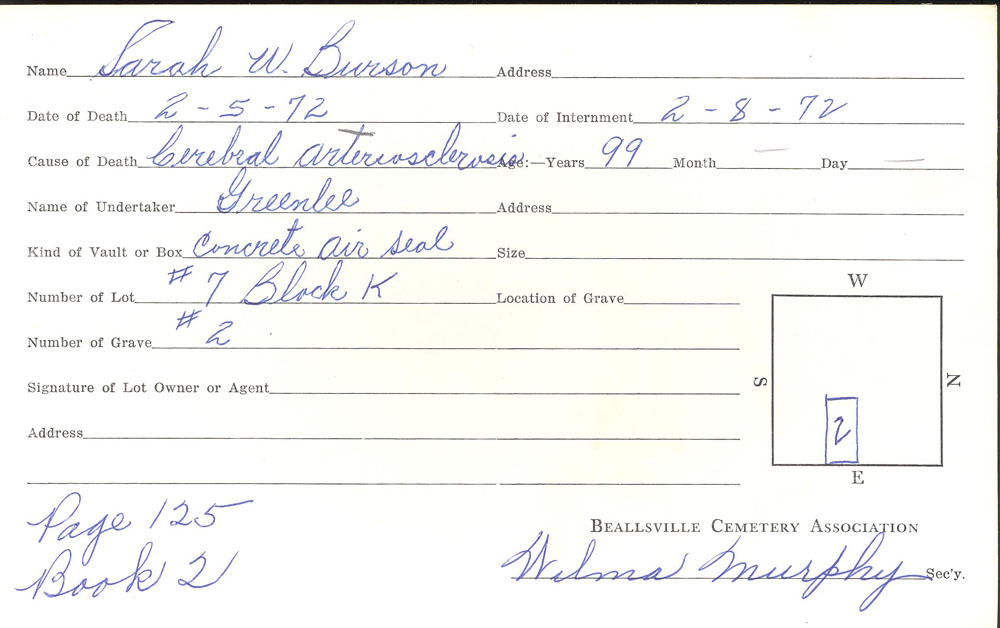 Name Sarah W. Burson Address
Date of Death 2-5-72 Date of Internment 2-8-72
Cause of Death Cerebral arteriosclerosis Age:—Years 99 Month — Day —
Name of Undertaker Greenlee Address
Kind of Vault or Box Concrete air seal Size
Number of Lot #7 Block K Location of Grave
Number of Grave #2
Signature of Lot Owner or Agent
Address
W
S N
2
E
Page 125
Book 2
BEALLSVILLE CEMETERY ASSOCIATION
Wilma Murphy Sec'y.